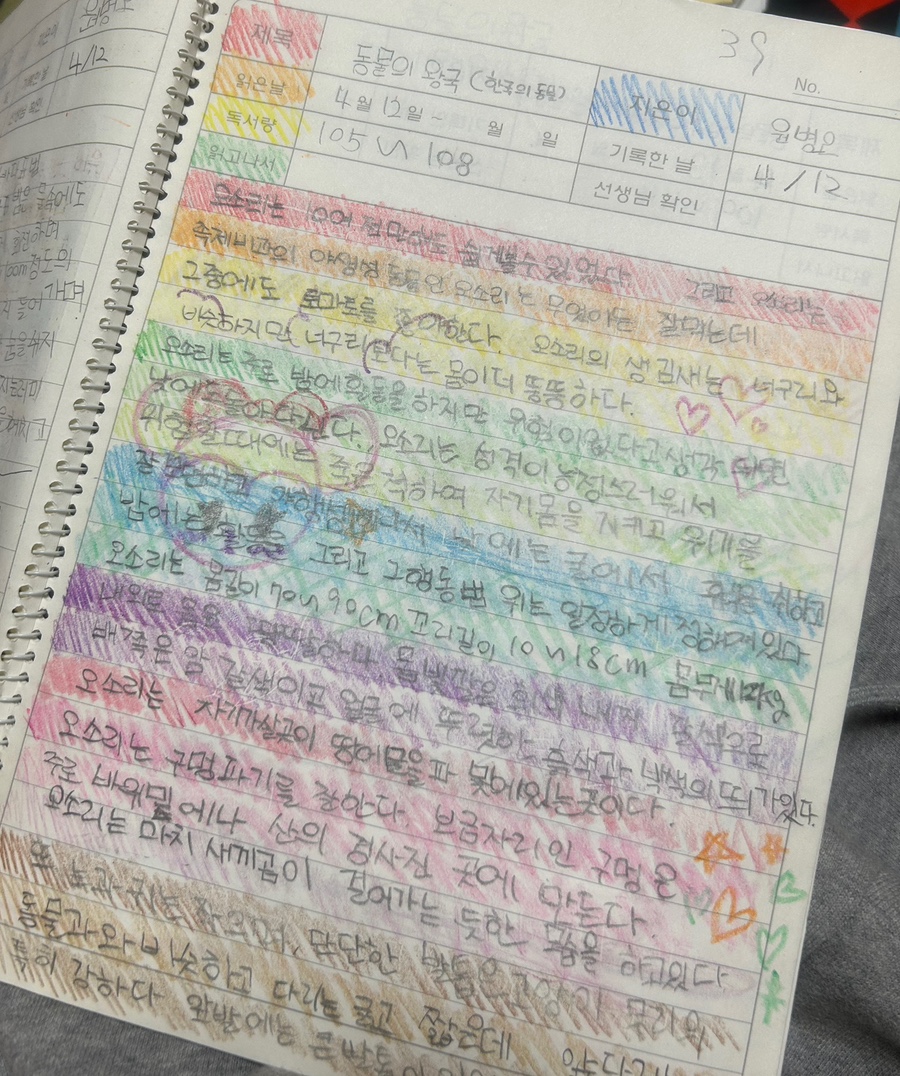 39
No.
제목 동물의 왕국 (한국의 동물) 지은이 원병오
읽은날 4월 12일 ~ 월 일 기록한 날 4/12
독서량 105 ~ 108 선생님 확인
읽고나서
오소리는 100여 전만해도 쉽게볼수있었다. 그리고 오소리는
족제비과의 야생성 동물인 오소리는 무엇이든 잘먹는데
그중에도 토마토를 좋아한다. 오소리의 생김새는 너구리와
비슷하지만 너구리보다는 몸이더 뚱뚱하다.
오소리는 주로 밤에활동을하지만 위험이없다고 생각 되면
낮에도 돌아다닌다. 오소리는 성격이능청스러워서
위험할때에는 죽은 척하여 자기몸을 지키고 위기를
잘 낮에는 굴에서 휴식을 취하고
밤에는 그리고 그행동범위는 일정하게정해져있다
오소리는 몸길이 70~90cm 꼬리길이 10~18cm 몸무게
몸빛깔은 회색으로
배쪽은 암갈색이고 얼굴에 뚜렷한 흑색과 백색의 띠가있다.
오소리는 자기가살곳이 땅에굴을파 놓에있는곳이다.
오소리는 구멍파기를 잘한다. 보금자리인 구멍은
주로 바위밑에나 산의 경사진 곳에 만든다.
오소리는 마치 새끼곰이 걸어가는 듯한 몸을 하고있다
또 눈과 귀는 작으며, 단단한 발톱은
동물과와 비슷하고 다리는 굵고 짧은데 앞다리는
특히 강하다 앞발에는 큰발톱